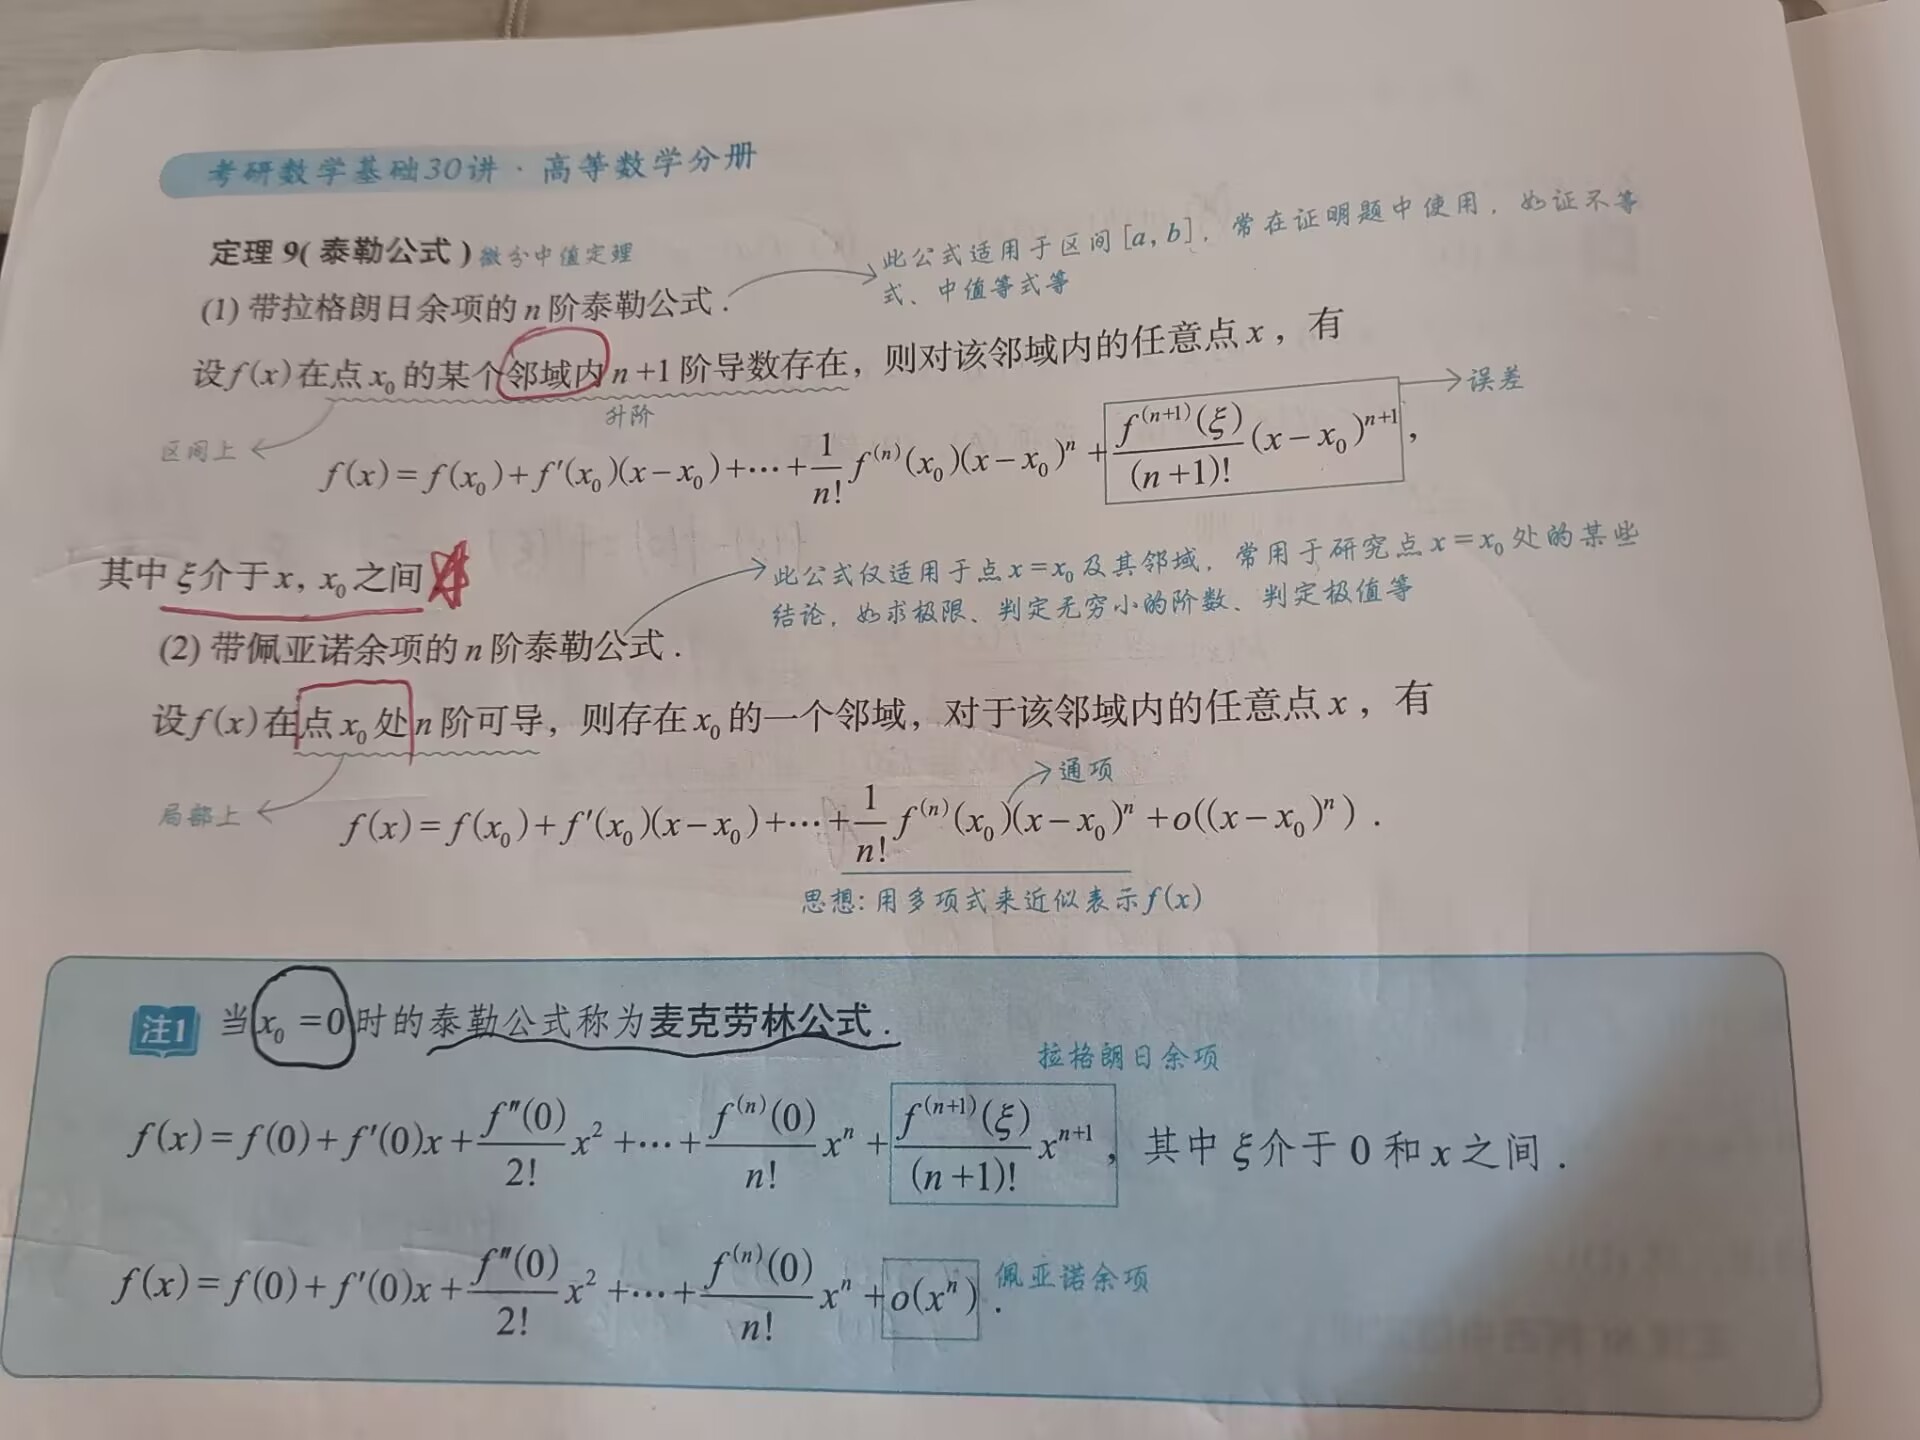 考研数学基础30讲·高等数学分册
定理9(泰勒公式) 微分中值定理
此公式适用于区间[a, b], 常在证明题中使用, 如证不等
式、中值等式等
(1) 带拉格朗日余项的 n 阶泰勒公式.
设 f(x) 在点 x₀ 的某个邻域内 n+1 阶导数存在, 则对该邻域内的任意点 x, 有
升阶
误差
区间上
f(x)=f(x₀)+f′(x₀)(x−x₀)+⋯+\frac{1}{n!}f⁽ⁿ⁾(x₀)(x−x₀)ⁿ+\frac{f⁽ⁿ⁺¹⁾(ξ)}{(n+1)!}(x−x₀)ⁿ⁺¹,
其中 ξ 介于 x, x₀ 之间
此公式仅适用于点 x=x₀ 及其邻域, 常用于研究点 x=x₀ 处的某些
结论, 如求极限、判定无穷小的阶数、判定极值等
(2) 带佩亚诺余项的 n 阶泰勒公式.
设 f(x) 在点 x₀ 处 n 阶可导, 则存在 x₀ 的一个邻域, 对于该邻域内的任意点 x, 有
通项
局部上
f(x)=f(x₀)+f′(x₀)(x−x₀)+⋯+\frac{1}{n!}f⁽ⁿ⁾(x₀)(x−x₀)ⁿ+o((x−x₀)ⁿ).
思想: 用多项式来近似表示 f(x)
注1 当 x₀=0 时的泰勒公式称为麦克劳林公式.
拉格朗日余项
f(x)=f(0)+f′(0)x+\frac{f″(0)}{2!}x²+⋯+\frac{f⁽ⁿ⁾(0)}{n!}xⁿ+\frac{f⁽ⁿ⁺¹⁾(ξ)}{(n+1)!}xⁿ⁺¹, 其中 ξ 介于 0 和 x 之间.
f(x)=f(0)+f′(0)x+\frac{f″(0)}{2!}x²+⋯+\frac{f⁽ⁿ⁾(0)}{n!}xⁿ+o(xⁿ). 佩亚诺余项